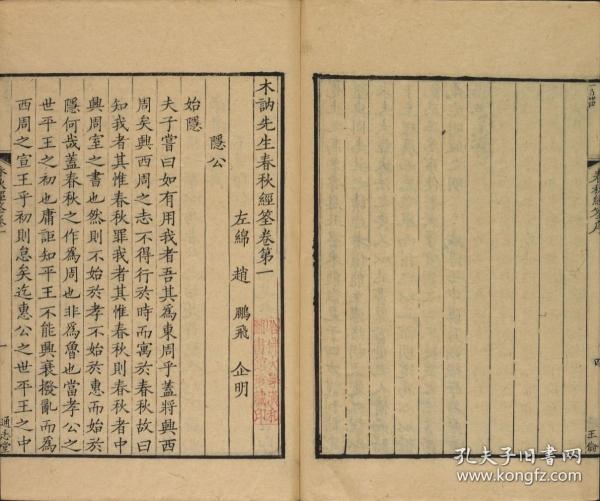 木訥先生春秋經筌卷第一
左綿 趙 鵬飛 企明
隱公
始隱
夫子嘗曰如有用我者吾其為東周乎蓋將興西
周矣興西周之志不得行於時而寓於春秋故曰
知我者其惟春秋罪我者其惟春秋則春秋者中
興周室之書也然則不始於孝不始於惠而始於
隱何哉蓋春秋之作為周也非為魯也當孝公之
世平王之初也庸詎知平王不能興衰撥亂而為
西周之宣王乎初則息矣迄惠公之世平王之中
春秋經筌卷一
一
通志堂
春秋經筌序
四
王倫
孔夫子旧书网
www.kongfz.com